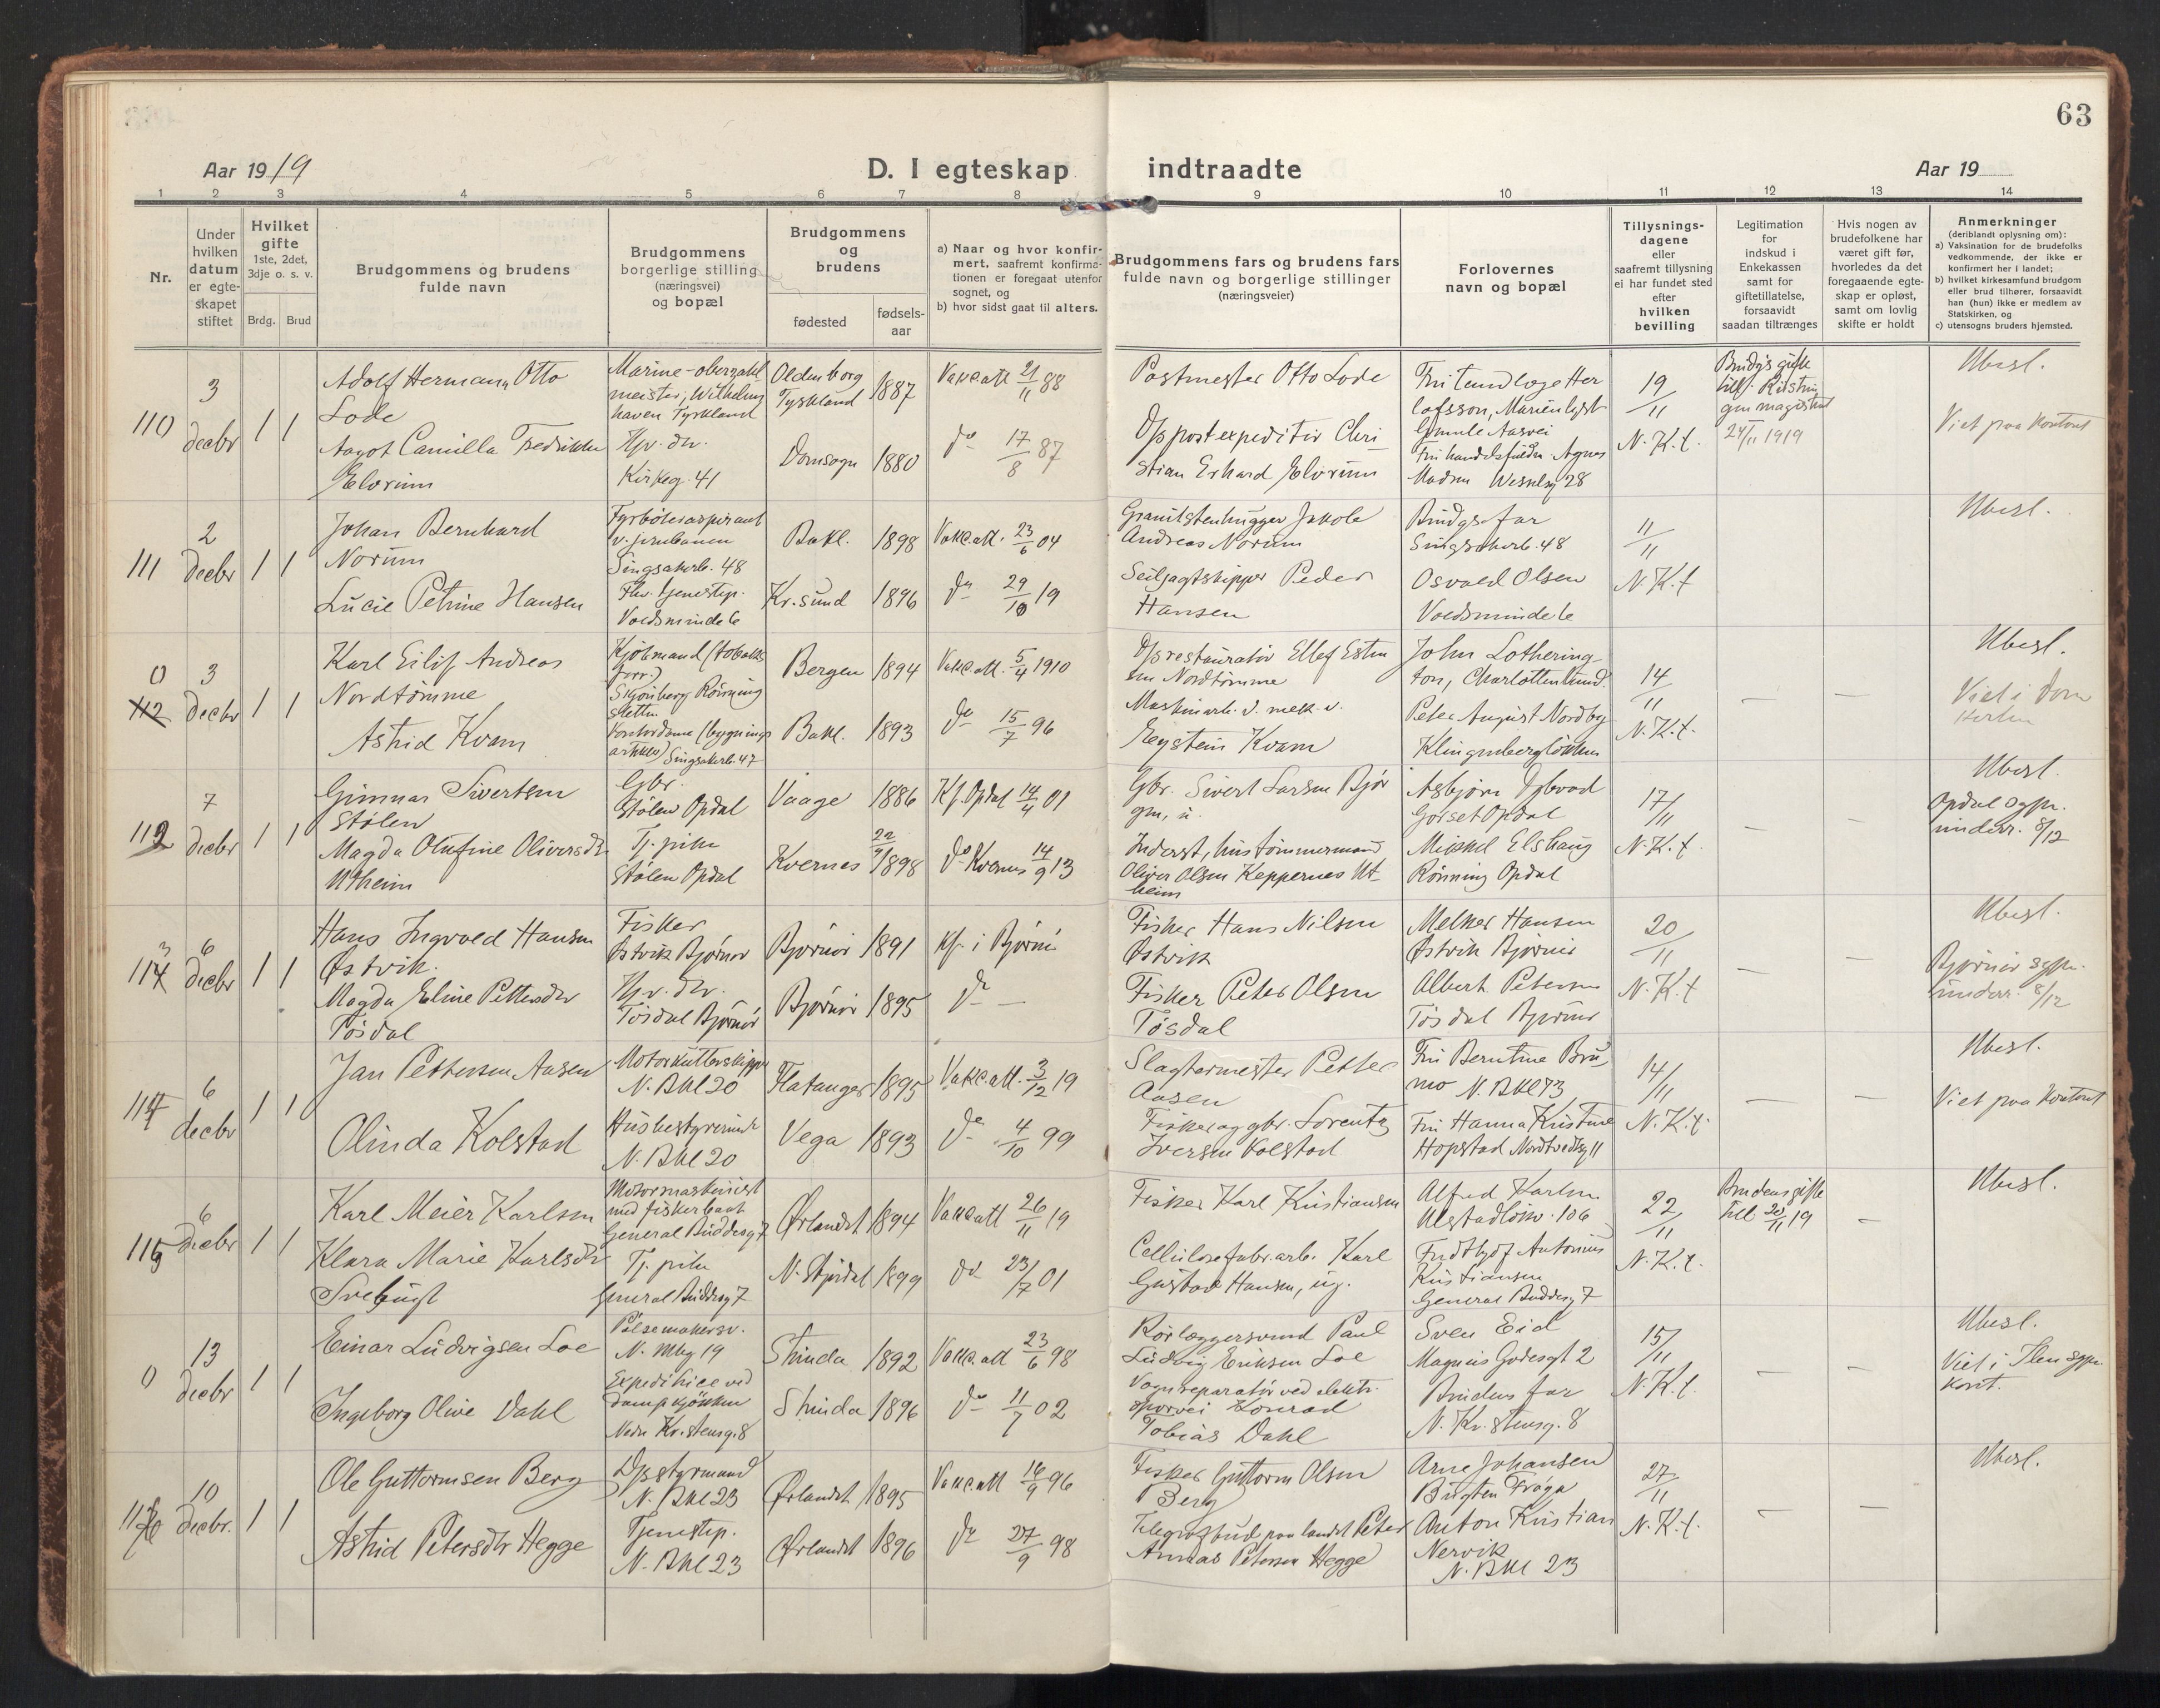 63
Aar 1919
D. I egteskap indtraadte
Aar 19
1 2 3 4 5 6 7 8 9 10 11 12 13 14
Nr.
Under hvilken datum er egte-skapet stiftet
Hvilket gifte 1ste, 2det, 3dje o. s. v.
Brdg. Brud
Brudgommens og brudens fulde navn
Brudgommens borgerlige stilling (næringsvei) og bopæl
Brudgommens og brudens
fødested
fødsels-aar
a) Naar og hvor konfir-mert, saafremt konfirma-tionen er foregaat utenfor sognet, og
b) hvor sidst gaat til alters.
Brudgommens fars og brudens fars fulde navn og borgerlige stillinger (næringsveier)
Forlovernes navn og bopæl
Tillysnings-dagene eller saafremt tillysning ei har fundet sted efter hvilken bevilling
Legitimation for indskud i Enkekassen samt for giftetillatelse, forsaavidt saadan tiltrænges
Hvis nogen av brudefolkene har været gift før, hvorledes da det foregaaende egte-skap er opløst, samt om lovlig skifte er holdt
Anmerkninger (deriblandt oplysning om):
a) Vaksination for de brudefolks vedkommende, der ikke er konfirmert her i landet;
b) hvilket kirkesamfund brudgom eller brud tilhører, forsaavidt han (hun) ikke er medlem av Statskirken, og
c) utensogns bruders hjemsted.
110
3 decbr
1 1
Adolf Hermann Otto
Lode
Aagot Camilla Fredrikke
Elvrum
Marine-oberzahl
meister, Wilhelms
haven Tyskland
Hjv. dtr.
Kirkeg. 41
Oldenborg
Tyskland
1887
Domsogn 1880
Vakc.att 21/11 88
do 17/8 87
Postmester Otto Lode
Dp postexpeditør Chri
stian Erhard Elvrum
Frk tandlæge Etter
lofsson, Marienlyst
Gamle Aasvei
Agnes
Madsen Wesselsg 28
19/11
N.K.t.
Brudgs gifte
till.
magistrat
24/11 1919
Ubesl.
Viet paa Kontoret
111
2 decbr
1 1
Johan Bernhard
Norum
Lucie Petrine Hansen
Fyrbøteraspirant
v. jernbanen
Singsakerb. 48
Fhv. tjenestep.
Voldsminde 6
Bakl. 1898
Kr.sund 1896
Vakc.att. 23/6 04
do 29/10 19
Granitstenhugger Jakob
Andreas Norum
Seiljagtskipper Peder
Hansen
Brudgs far
Singsakerb. 48
Osvald Olsen
Voldsminde 6
11/11
N.K.t
Ubesl.
0
112
3 decbr
1 1
Karl Eilif Andreas
Nordtømme
Astrid Kvam
Kjøbmand (tobakks
forr.)
Skjønberg Rønning
sletten
Kontordame (bygnings
artikler) Singsakerb. 47
Bergen 1894
Bakl. 1893
Vakc.att. 5/4 1910
do 15/7 96
Dp restauratør Ellef Esten
sen Nordtømme
Maskinarb. v. mek. v.
Eystein Kvam
John Lothering
ton, Charlottenlund.
Peter August Nordby
Klingenbergløkken
14/11
N.K.t.
Ubesl.
Viet i Dom
kirken
112
7 decbr
1 1
Gunnar Sivertsen
Stølen
Magda Olufine Oliversdtr
Utheim
Gbr.
Stølen Opdal
Tj. pike
Stølen Opdal
Vaage 1886
Kvernes 22/9 1898
Kf. Opdal 14/4 01
do Kvernes 14/9 13
Gbr. Sivert Larsen Bjør
gen, u.
Inderst, hustømmermand
Oliver Olsen Keppernes Ut
heim
Asbjørn Dølvad
Gorset Opdal
Mikkel Elshaug
Rønning Opdal
17/11
N.K.t.
Ubesl.
Opdal sgpr.
underr. 8/12
113
6 decbr
1 1
Hans Ingvald Hansen
Østvik.
Magda Eline Pettersdtr
Tøsdal
Fisker
Østvik Bjørnør
Hjv. dtr.
Tøsdal Bjørnør
Bjørnør 1891
Bjørnør 1895
Kf. i Bjørnør
do
Fisker Hans Nilsen
Østvik
Fisker Peter Olsen
Tøsdal
Melker Hansen
Østvik Bjørnør
Albert Petersen
Tøsdal Bjørnør
20/11
N.K.t
Ubesl.
Bjørnør sgpr.
underr. 8/12
114
6 decbr
1 1
Jan Pettersen Aasen
Olinda Kolstad
Motorkutterskipper
N. Bkl 20
Husbestyrerinde
N. Bkl 20
Flatanger 1895
Vega 1893
Vakc.att. 3/12 19
do 4/10 99
Slagtermester Petter
Aasen
Fisker og gbr. Lorentz
Iversen Kolstad
Frk Berntine Bru
mo N. Bkl 73
Frk Hanna Kristine
Hopstad Nordtvedtsg 11
14/11
N.K.t.
Ubesl.
Viet paa Kontoret
115
6 decbr
1 1
Karl Meier Karlsen
Klara Marie Karlsdtr
Svebugt
Motormaskinist
med fiskerbaat
General Buddesg 7
Tj. pike
General Buddesg 7
Ørlandet 1894
N. Stjørdal 1899
Vakcatt 26/11 19
do 23/7 01
Fisker Karl Kristiansen
Cellulosefabr.arb. Karl
Gustav Hansen, ug.
Alfred Karlsen
Ulstadløkv. 106
Fridthjof Antonius
Kristiansen
General Buddesg 7
22/11
N.K.t.
Brudens gifte
till 20/11 19
Ubesl.
0
13 decbr
1 1
Einar Ludvigsen Loe
Ingeborg Olive Dahl
Pølsemakersv.
N. Mbg 19
Expeditrice ved
dampkjøkken
Nedre Kr.stensg. 8
Strinda 1892
Strinda 1896
Vakc.att 23/6 98
do 11/7 02
Rørlæggersvend Paul
Ludvig Eriksen Loe
Vognreparatør ved elektr.
sporvei Konrad
Tobias Dahl
Sven Eid
Magnus Godesgt 2
Brudens far
N. Kr. stensg. 8
15/11
N.K.t.
Ubesl.
Viet i Ilen sgpr.
kont.
116
10 decbr.
1 1
Ole Guttormsen Berg
Astrid Petersdtr Hegge
Dpstyrmand
N. Bkl 23
Tjenestep.
N. Bkl 23
Ørlandet 1895
Ørlandet 1896
Vakcatt 16/9 96
do 27/9 98
Fisker Guttorm Olsen
Berg
Telegrafbud paa landet Peter
Andreas Petersen Hegge
Arne Johansen
Bugten Frøya
Anton Kristian
Nervik
N. Bkl 23
27/11
N.K.t.
Ubesl.